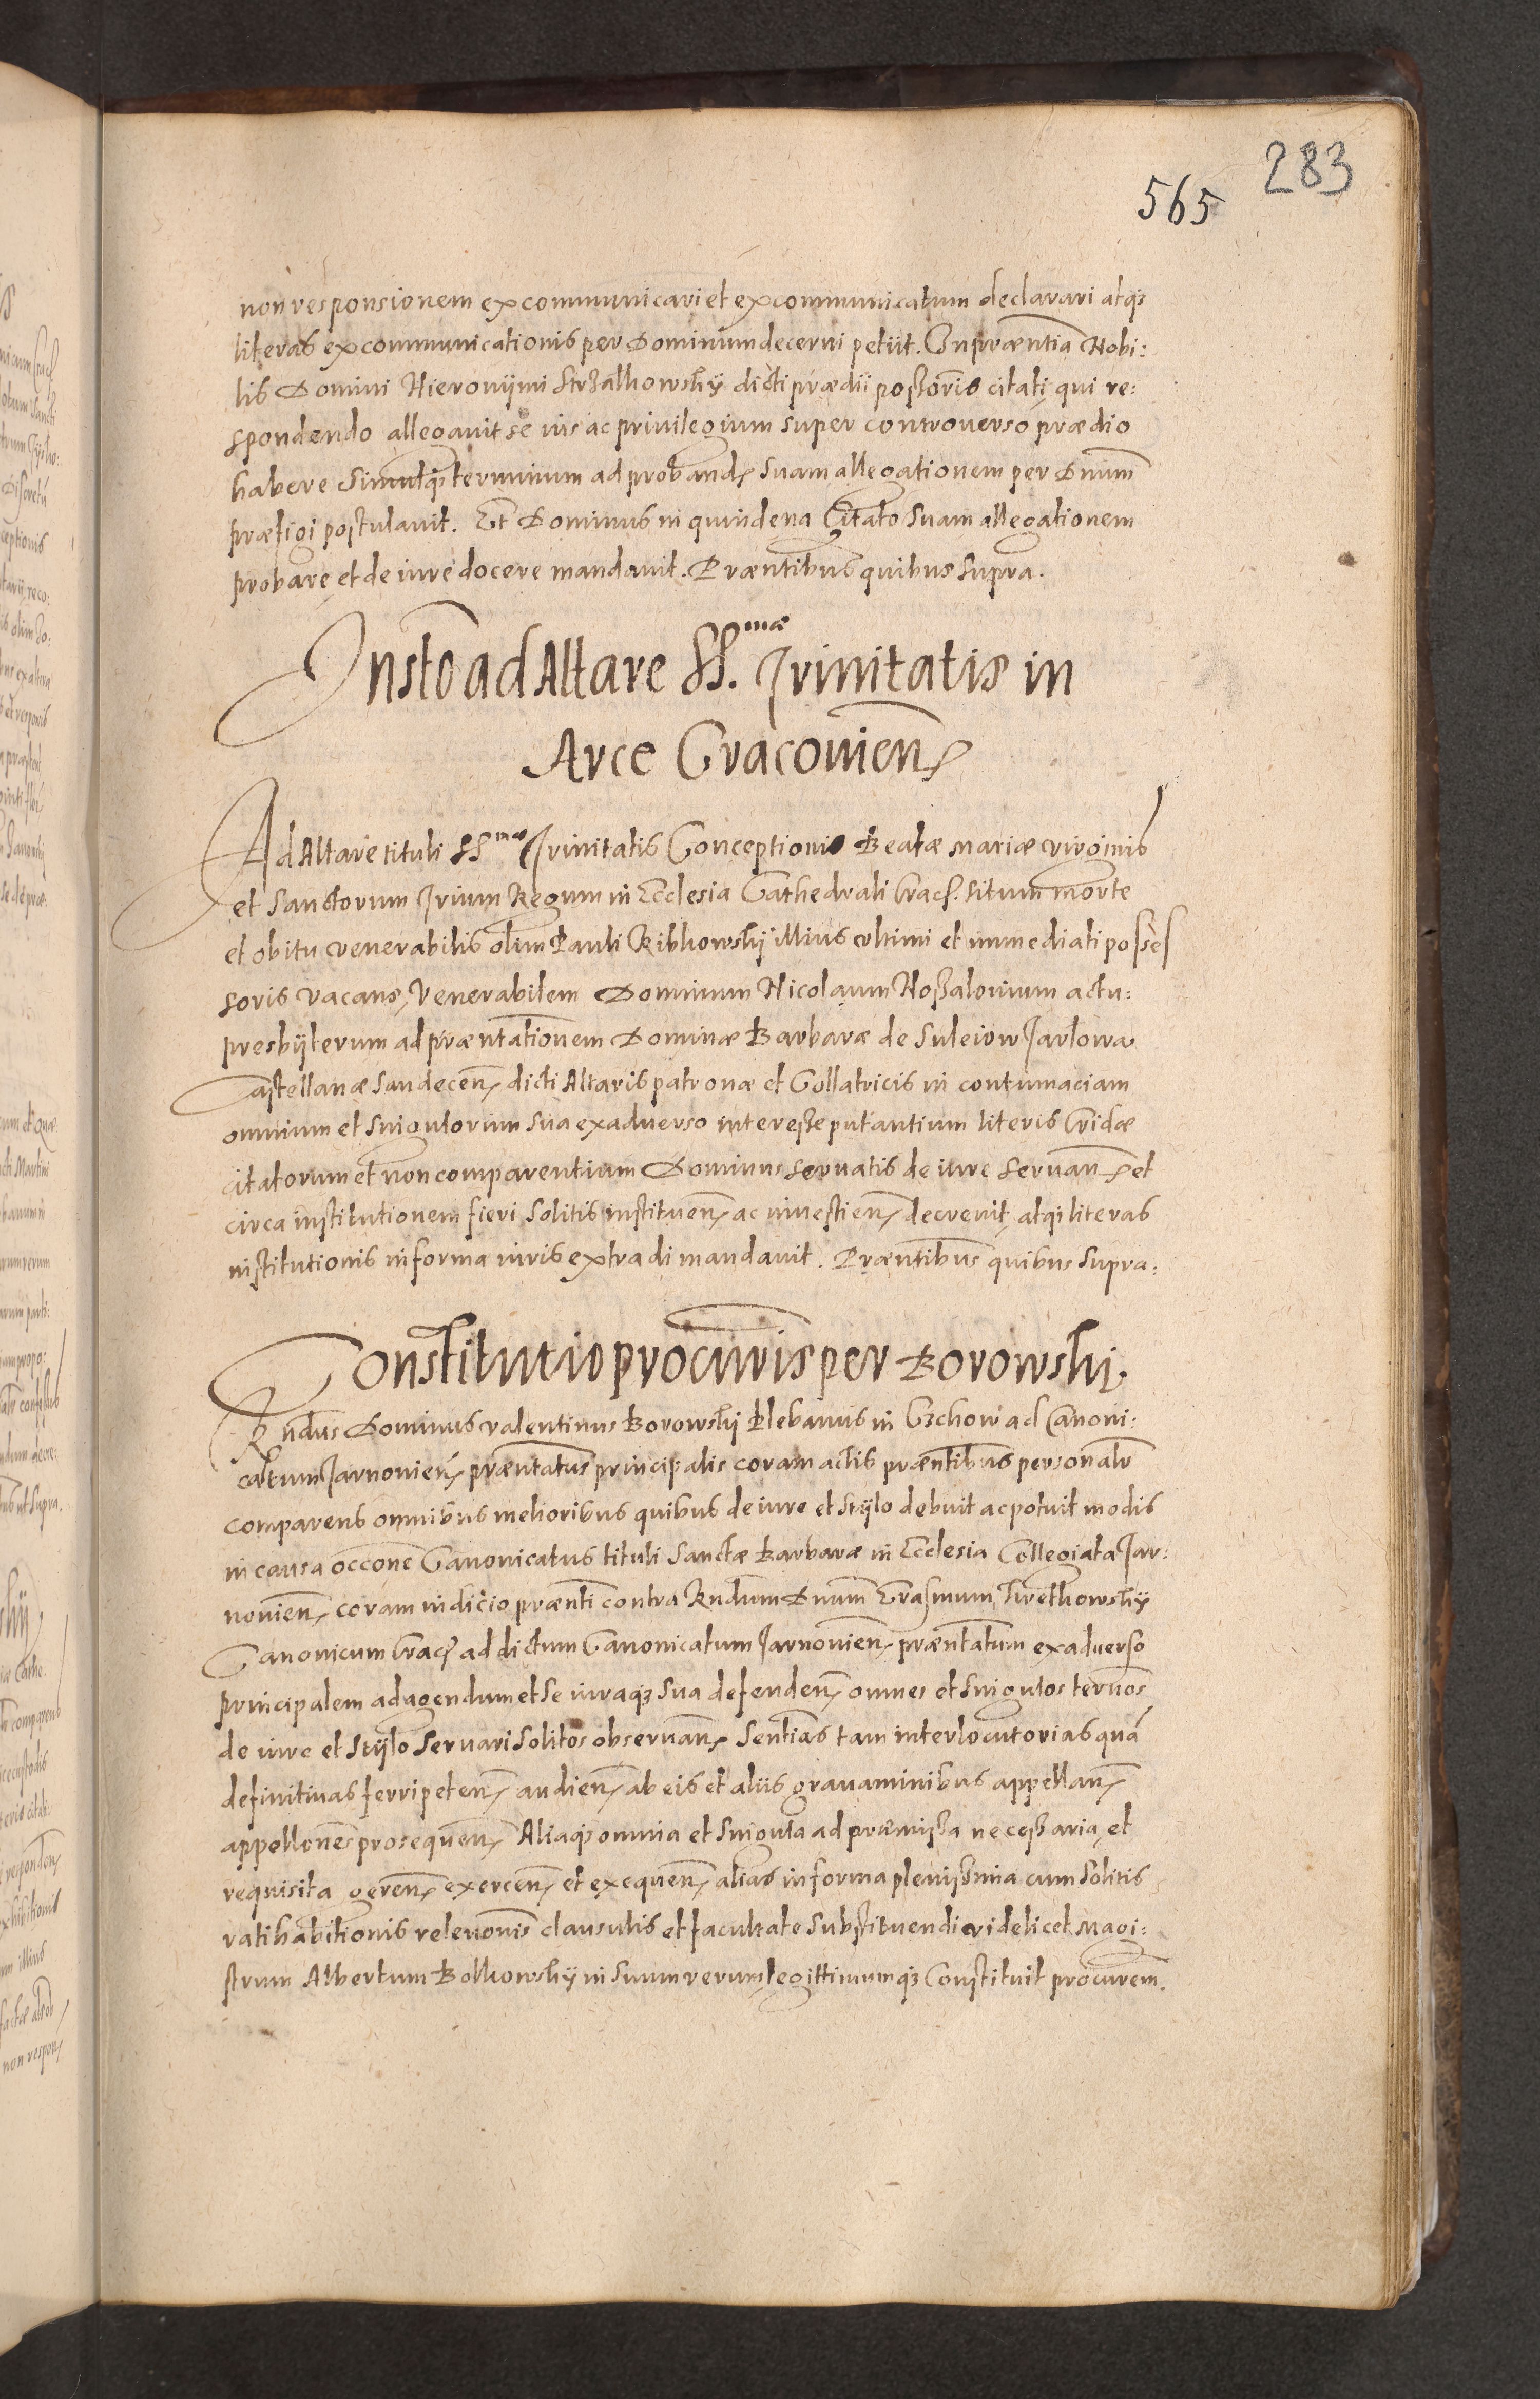 283
565
non responsionem excommunicari et excommunicatum declarari atq3
literas excommunicationis per Dominum decerni petiit. In præntia Nobi:
lis Domini Hieronijmi Strzalkowskÿ dicti prædii possoris citati, qui re:
spondendo allegauit se ius ac priuilegium super controuerso prædio
habere simulq3 terminum ad proband. suam allegationem per Dnum
præfigi postulauit. Et Dominus in quindena Citato suam allegationem
probare et de iure docere mandauit. Præntibus quibus supra.
Insto ad Altare SS.mæ Trinitatis in
Arce Cracouien.
Ad Altare tituli SSmæ Trinitatis Conceptionis Beatæ Mariæ virginis
et Sanctorum Trium Regum in Ecclesia Cathedrali Crac. situm morte
et obitu venerabilis olim Pauli Ribkowskÿ illius vltimi et immediati posses
soris vacans, Venerabilem Dominum Nicolaum actu:
presbÿterum ad præntationem Dominæ Barbaræ de Suleiow Jarlowa
Castellanæ Sandecen. dicti Altaris patronæ et Collatricis in contumaciam
omnium et singulorum sua ex aduerso interesse putantium literis Cridæ
citatorum et non comparentium Dominus seruatis de iure seruan. et
circa institutionem fieri solitis instituen. ac inuestien. decreuit, atq3 literas
institutionis in forma iuris extradi mandauit. Præntibus quibus supra:
Constitutio procuris per Borowski.
Rndus Dominus Valentinus Borowskÿ Plebanus in Czchow ad Canoni:
catum Tarnouien. præntatus principalis coram actis præntibus personalr
comparens omnibus melioribus quibus de iure et stÿlo debuit ac potuit modis
in causa occone Canonicatus tituli Sanctæ Barbaræ in Ecclesia Collegiata Tar:
nouien. coram iudicio prænti contra Rndum Dnum Erasmum Kretkowskÿ
Canonicum Crac. ad dictum Canonicatum Tarnouien. præntatum ex aduerso
principalem ad agendum et se iuraq3 sua defenden. omnes et singulos termos
de iure et stÿlo seruari solitos obseruan. sentias tam interlocutorias quá
definitiuas ferri peten. audien. ab eis et aliis grauaminibus appellan.
appellones prosequen. Aliaq3 omnia et singula ad præmissa necessaria et
requisita geren. exercen. et exequen. alias in forma plenissima cum solitis
ratihabitionis releuonis clausulis et facultate substituendi videlicet Magi:
strum Albertum Bolkowskÿ in suum verum legittimumq3 Constituit procurem.